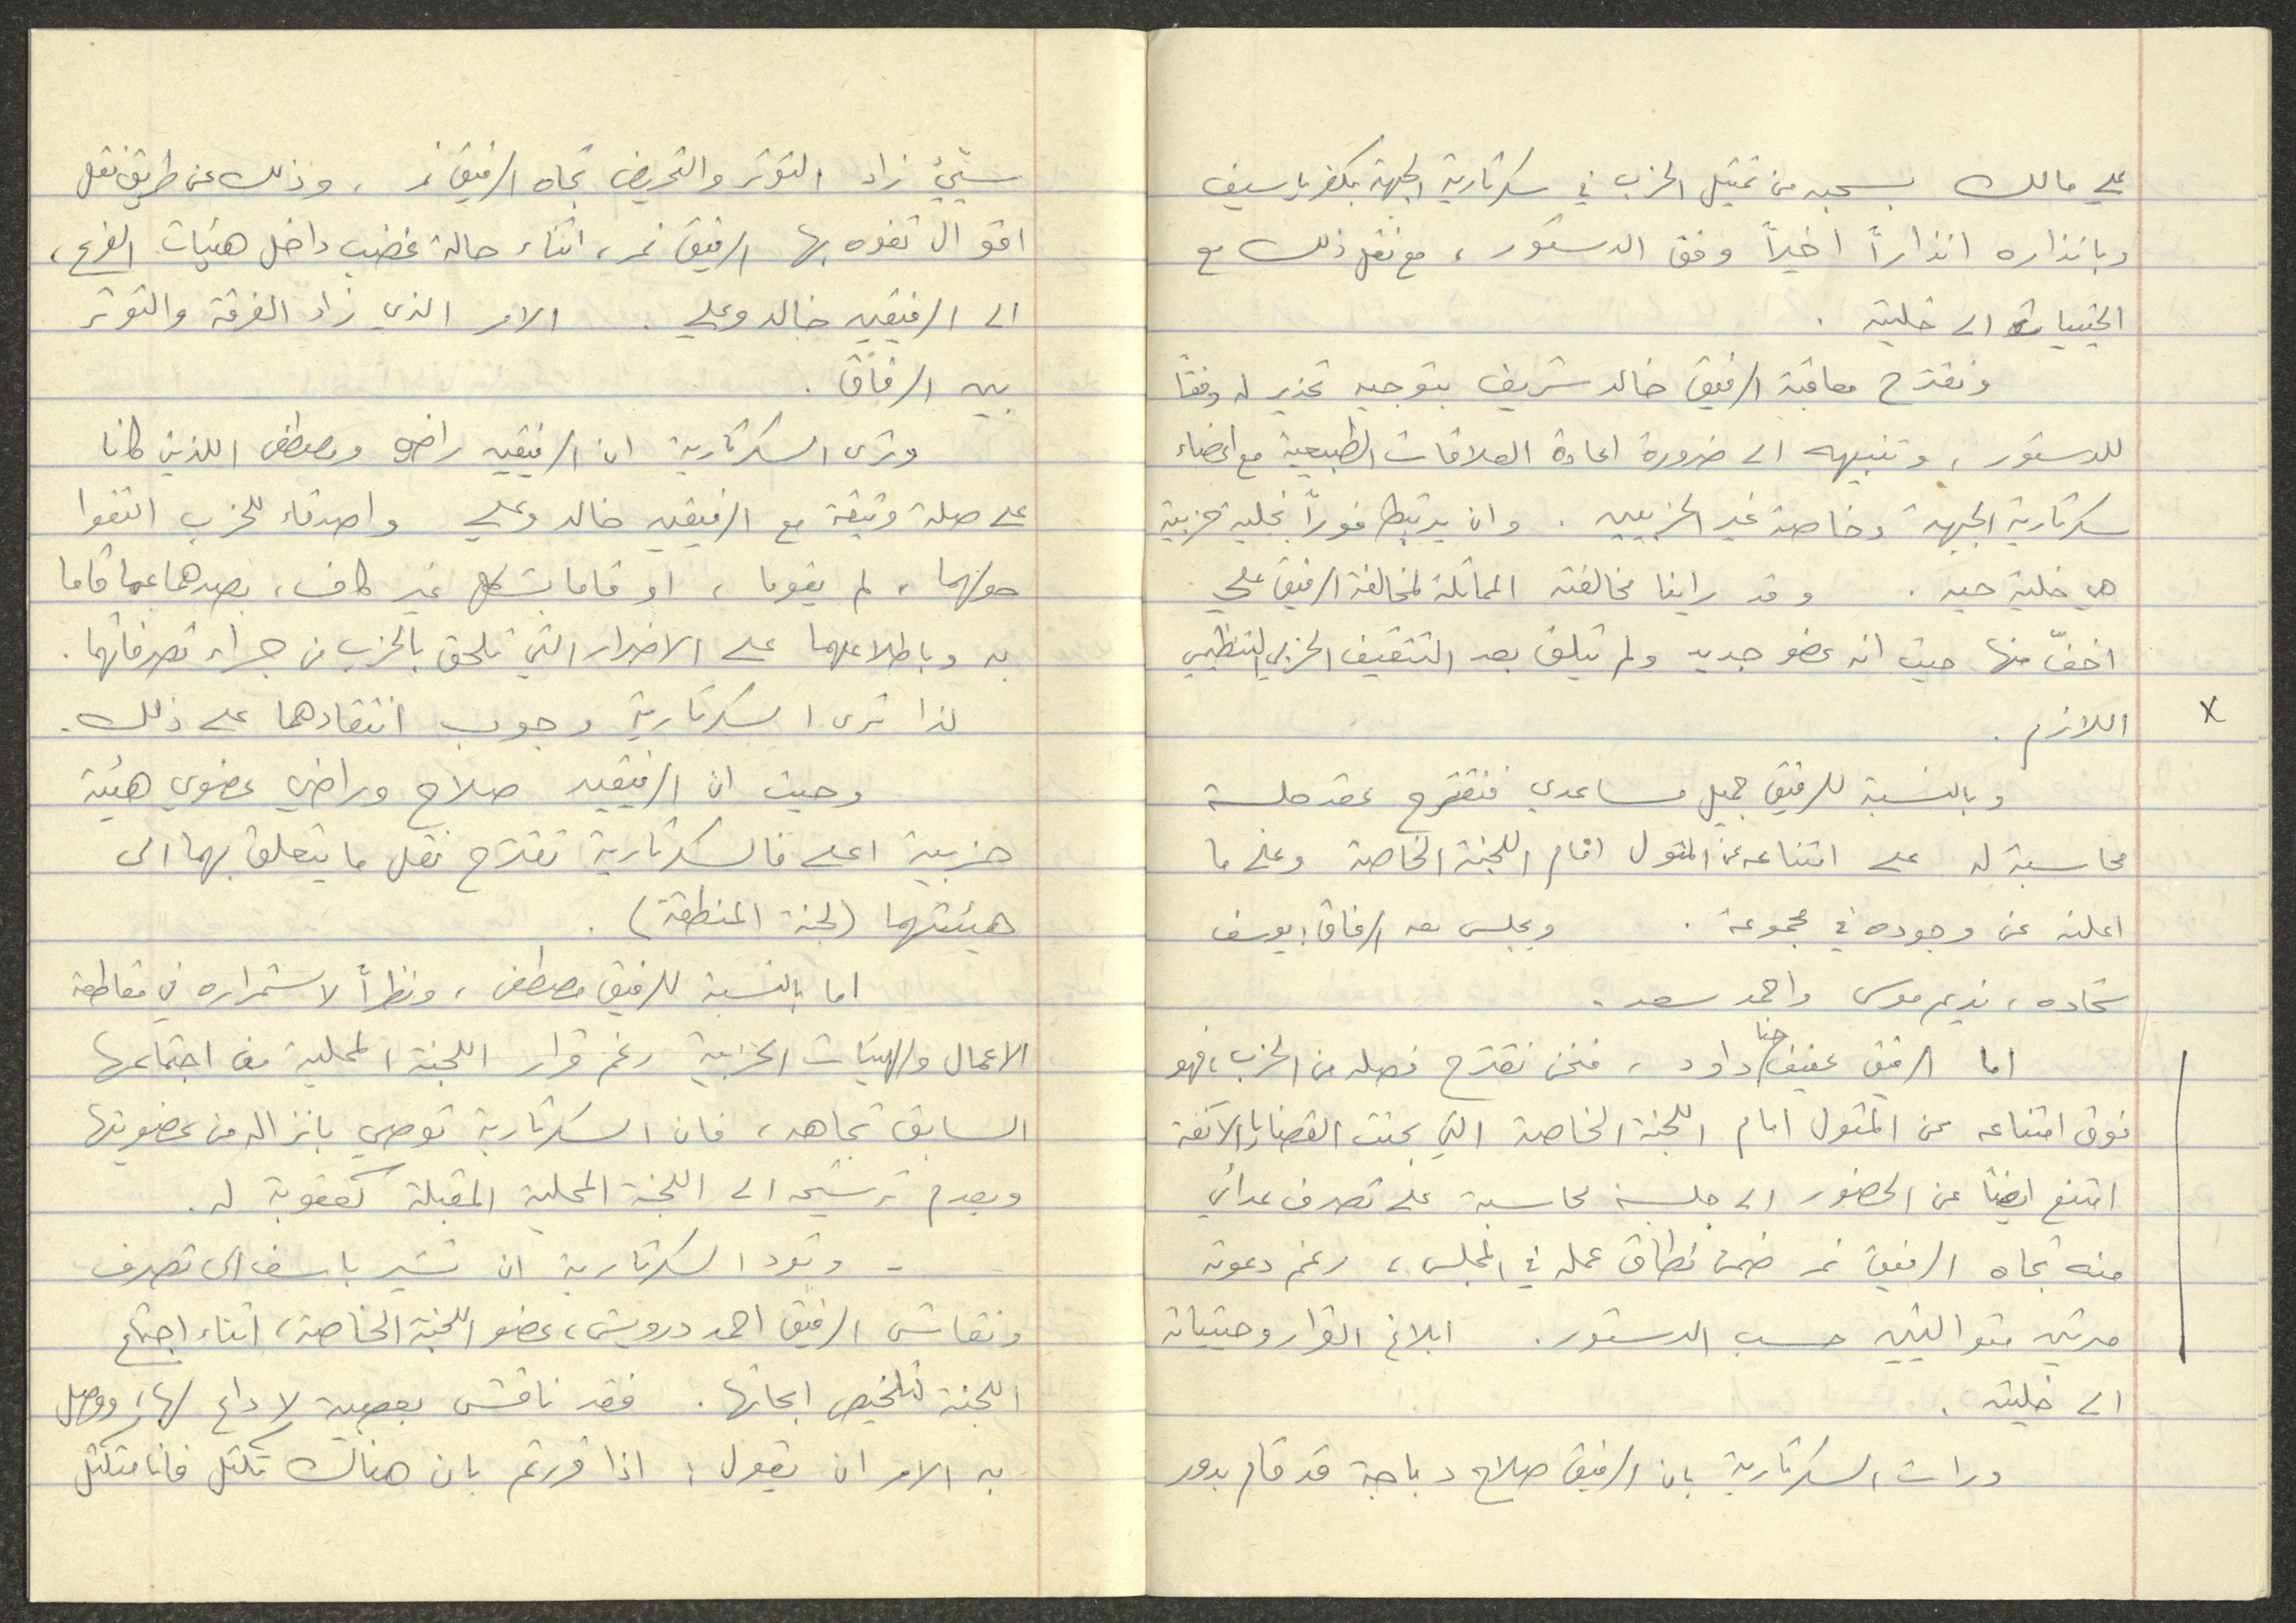 علي مالك بسحبه من تمثيل الحزب في سكرتارية الجبهة بكفر ياسيف
وبانذاره انذاراً اخيراً وفق الدستور ، مع نقل ذلك مع
الحيثيات الى خليته .
ونقترح معاقبة الرفيق خالد شريف بتوجيه تحذير له وفقا
للدستور ، وتنبيهه الى ضرورة اعادة العلاقات الطبيعية مع اعضاء
سكرتارية الجبهة وخاصة غير الحزبيين . وان يرتبط فوراً بخلية حزبية
هي خلية حيه . وقد راينا مخالفته المماثلة لمخالفة الرفيق علي
اخفّ منها حيث انه عضو جديد ولم يتلق بعد التثقيف الحزبي التنظيمي
x اللازم .
وبالنسبة للرفيق جميل مساعدي فنقترح عقد جلسة
محاسبة له على امتناعه عن المثول امام اللجنة الخاصة وعلى ما
اعلنه عن وجوده في مجموعة . ويجلس معه الرفاق : يوسف
شحاده ، نديم موسى واحمد سعد .
اما الرفيق عفيف حنا داود ، فنحن نقترح فصله من الحزب ، فهو
فوق امتناعه عن المثول امام اللجنة الخاصة التي بحثت القضايا الآنفة
امتنع ايضاً عن الحضور الى جلسة محاسبة على تصرف عدائي
منه تجاه الرفيق نمر ضمن نطاق عمله في المجلس ، رغم دعوته
مرتين متواليتين حسب الدستور . ابلاغ القرار وحيثياته
الى خليته .
ورات السكرتارية بان الرفيق صلاح دباجة قد قام بدور
سيّئ زاد التوتر والتحريض تجاه الرفيق نمر ، وذلك عن طريق نقل
اقوال تفوه بها الرفيق نمر ، اثناء حالة غضب داخل هيئات الفرع ،
الى الرفيقين خالد وعلي . الامر الذي زاد الفرقة والتوتر
بين الرفاق .
وترى السكرتارية ان الرفيقين راضي ومصطفى اللذين كانا
على صلة وثيقة مع الرفيقين خالد وعلي واصدقاء للحزب التفوا
حولهما ، لم يقوما ، او قاما بشكل غير كاف ، بصدهما عما قاما
به وباطلاعهما على الاضرار التي تلحق بالحزب من جراء تصرفاتهما .
لذا ترى السكرتارية وجوب انتقادهما على ذلك .
وحيث ان الرفيقين صلاح وراضي عضوي هيئة
حزبية اعلى فالسكرتارية تقترح نقل ما يتعلق بهما الى
هيئتهما (لجنة المنطقة) .
اما بالنسبة للرفيق مصطفى ، ونظراً لاستمراره في مقاطعة
الاعمال والهيئات الحزبية رغم قرار اللجنة المحلية في اجتماعها
السابق تجاهه ، فان السكرتارية توصي بانزاله من عضويتها
وبعدم ترشيحه الى اللجنة المحلية المقبلة كعقوبة له .
- وتود السكرتارية ان تشير باسف الى تصرف
ونقاش الرفيق احمد درويش ، عضو اللجنة الخاصة ، اثناء اجتماع
اللجنة لتلخيص ابحاثها . فقد ناقش بعصبية لا داع لها ، ووصل
به الامر ان يقول : اذا قررتم بان هناك تكتل فانا متكتل